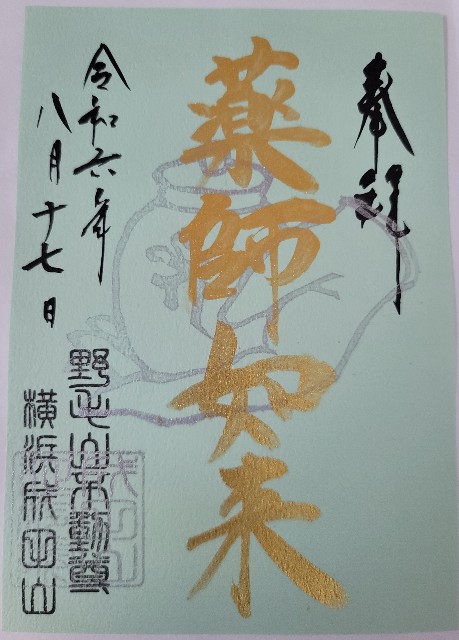 奉拝
薬師如来
令和六年
八月十七日
野毛山不動尊
横浜成田山